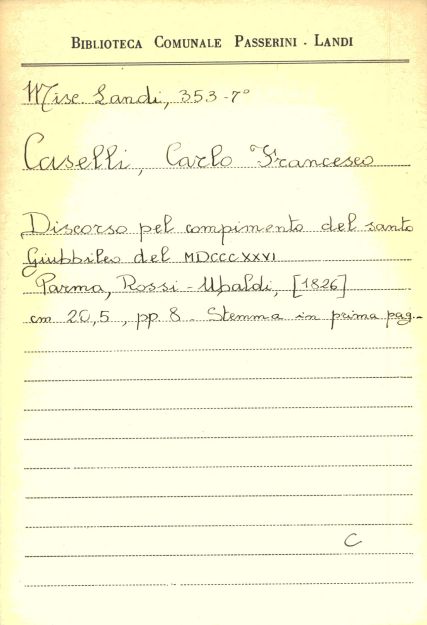 BIBLIOTECA COMUNALE PASSERINI - LANDI
Misc. Landi, 353-7°
Caselli, Carlo Francesco
Discorso pel compimento del santo
Giubbileo del MDCCCXXVI
Parma, Rossi-Ubaldi, [1826]
cm 20,5, pp. 8. Stemma in prima pag.
C